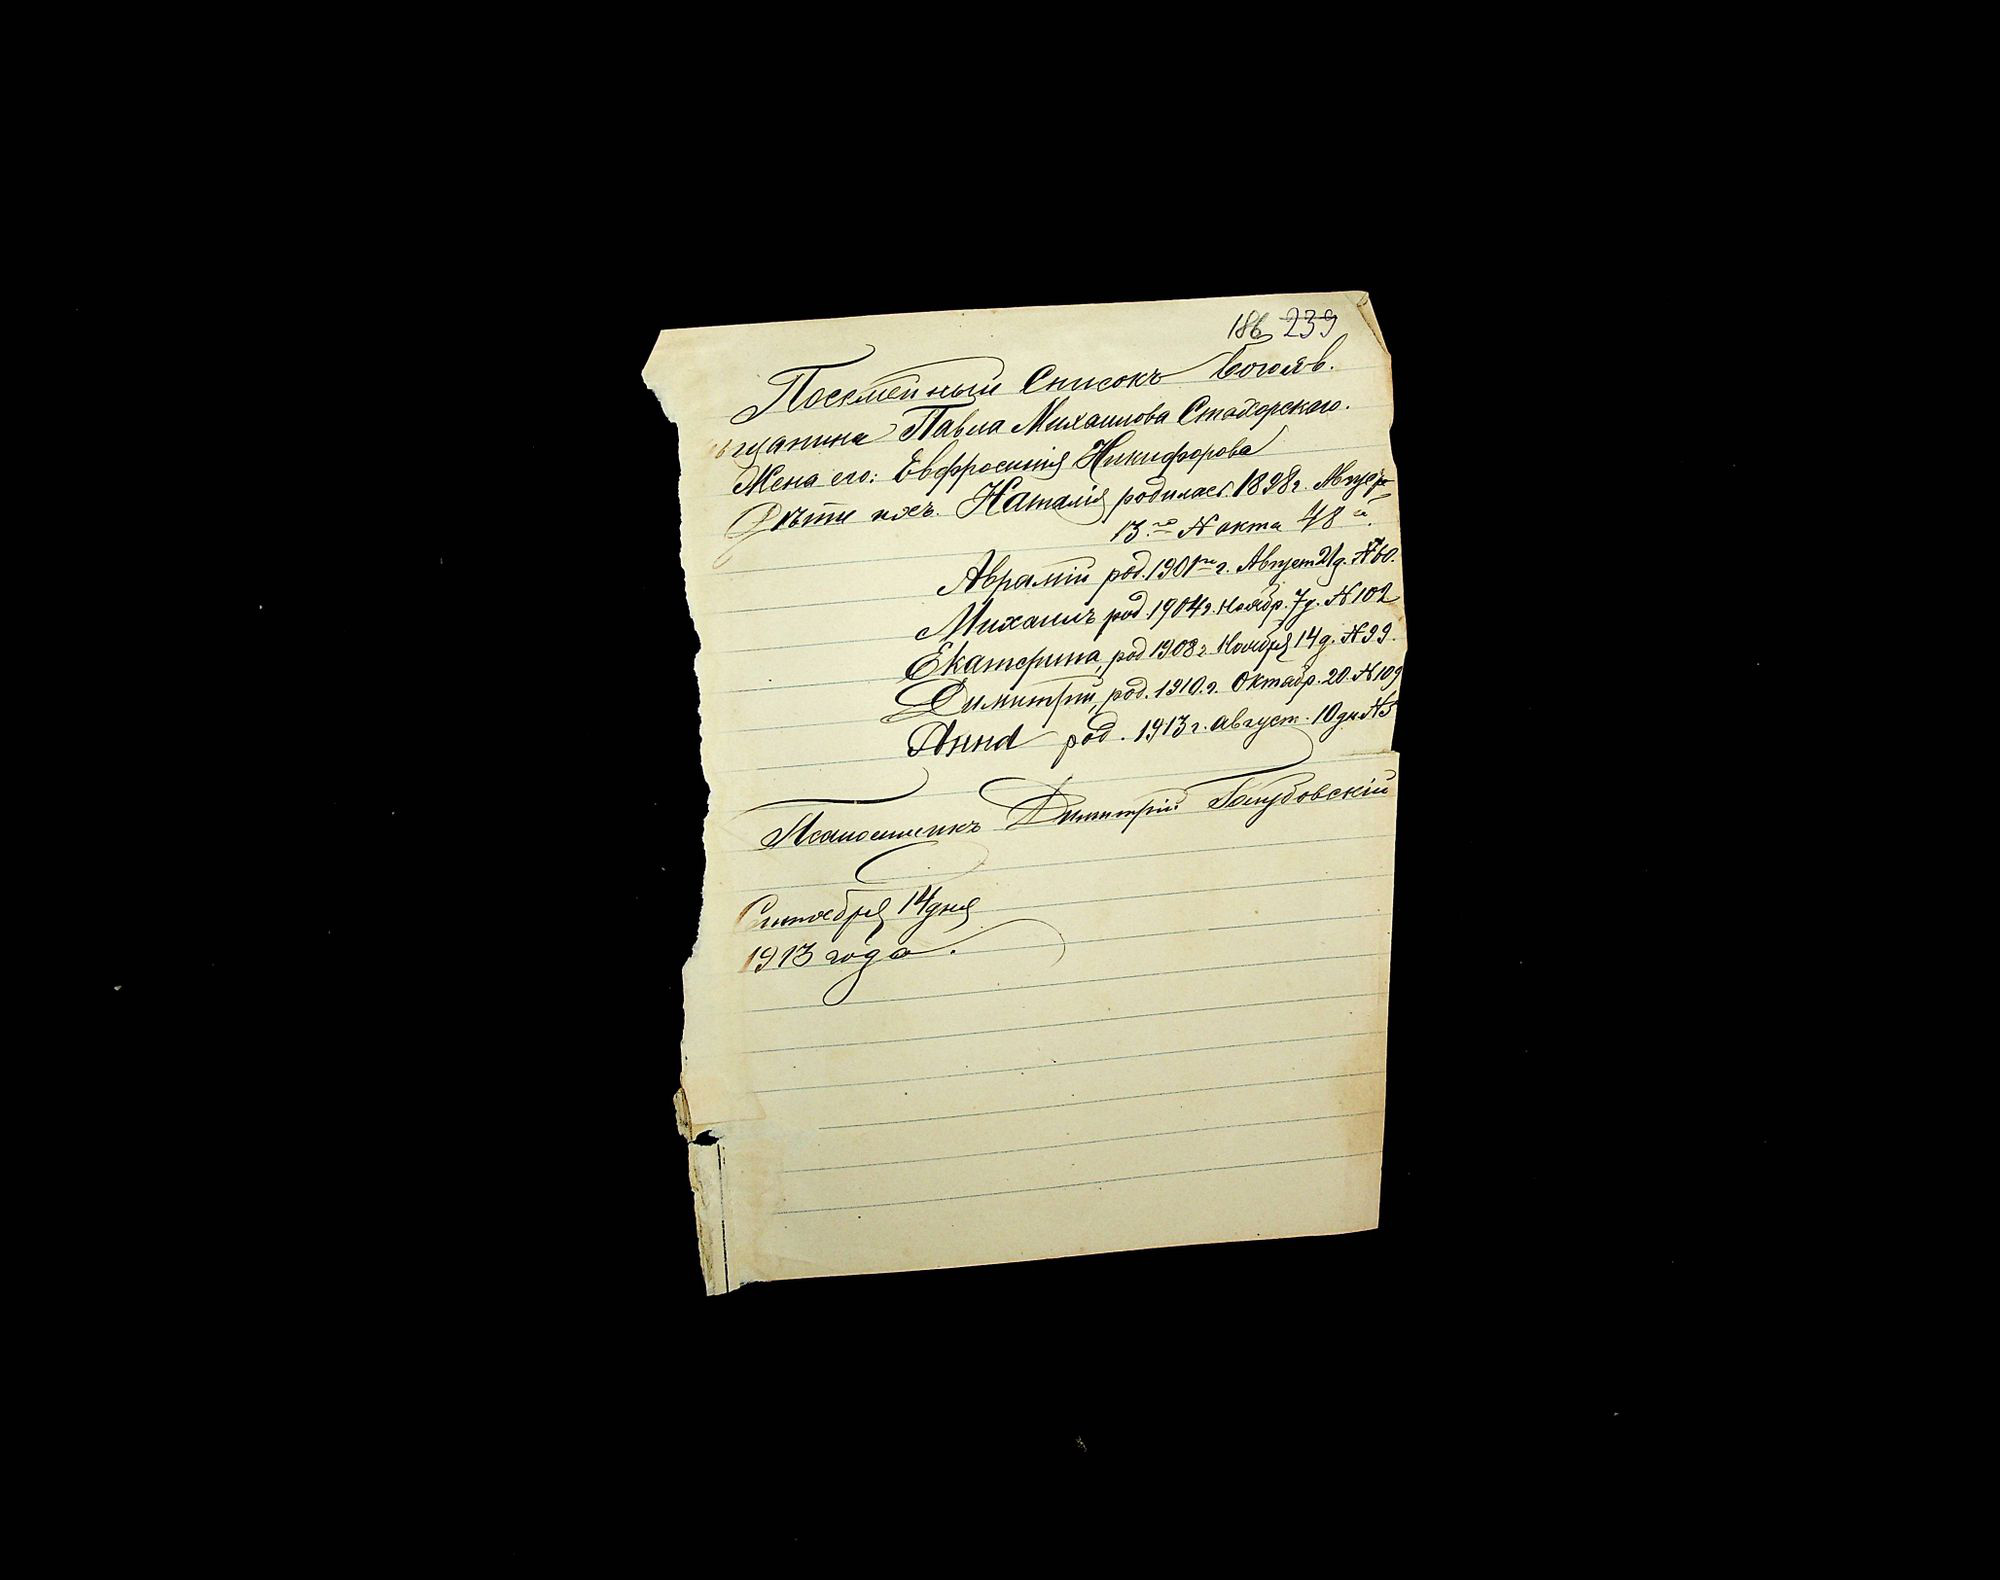 186 239
Посемейный Списокъ Богояв.
щанина Павла Михаилова Стахорскаго.
Жена его: Евфросинія Никифорова
Дѣти ихъ. Наталія родилась 1898 г. Августа
13.го № акта 48й.
Аврамій род. 1901го г. Август 21 д. № 60.
Михаилъ род. 1904 г. Ноябр. 7 д. № 102
Екатерина, род 1908 г. Ноября 14 д. № 99.
Димитрій, род. 1910. г. Октябр. 20. № 109
Анна род. 1913 г. август. 10 дн № 5
Псаломщикъ Димитрій Голубовскій
Сентября 14 дня
1913 года.